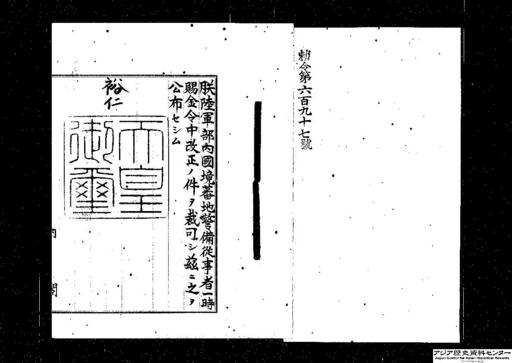 勅令第六百九十七號
朕陸軍部內國境蕃地警備從事者一時
賜金令中改正ノ件ヲ裁可シ茲ニ之ヲ
公布セシム
裕仁
天皇御璽
閣
アジア歴史資料センター
Japan Center for Asian Historical Records